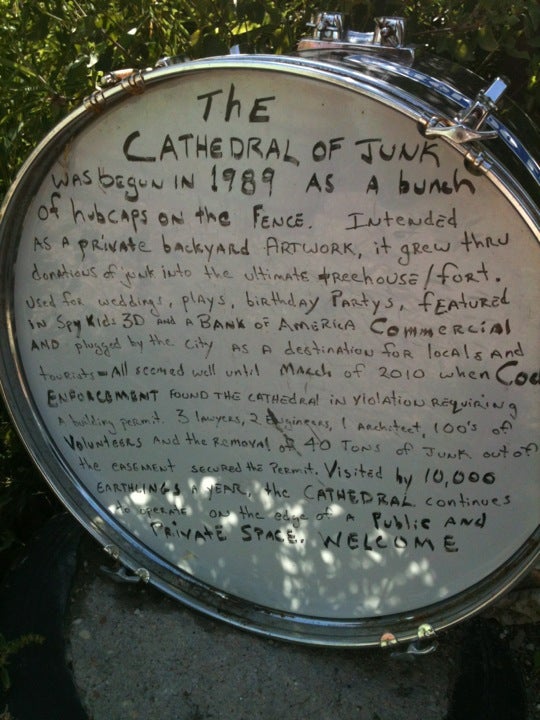 The
CATHEDRAL OF JUNK
WAS begun IN 1989 AS A bunch
of hubcaps on the FENCE. INtENdEd
AS A private backyard ARTWORK, it grew thru
donations of junk into the ultimate treehouse/fort.
Used for weddings, plays, birthday Partys, FEATURED
IN Spy Kids 3D and a BANK OF AMERICA COMMERCIAl
AND plugged by the City AS A destination for locals and
tourists - All seemed well until March of 2010 when Code
ENFORCEMENT FOUND THE CATHEdral IN VIOlATION REQUIRING
A building permit. 3 lawyers, 2 Engineers, 1 Architect, 100's of
Volunteers AND the REMOVAl of 40 TONS of JUNK out of
the EASEMENT SECURED the PERMIT. Visited by 10,000
EARTHLINGS A YEAR, the CATHEDRAL CONTINUES
to operate on the edge of a Public AND
PRIVATE SPACE. WELCOME